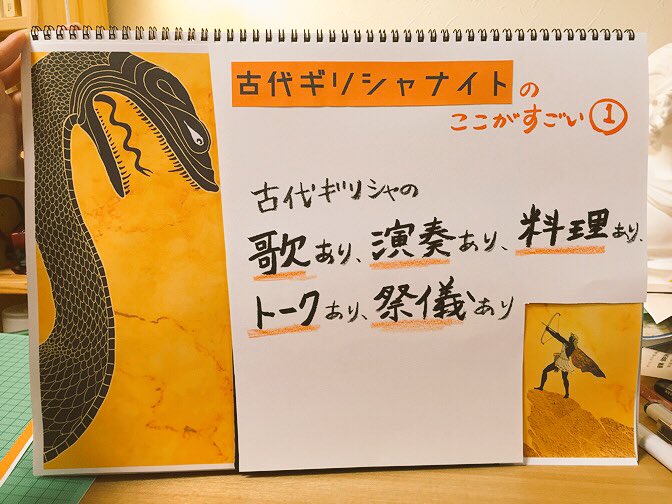 古代ギリシャナイトの
ここがすごい①
古代ギリシャの
歌あり、演奏あり、料理あり、
トークあり、祭儀あり